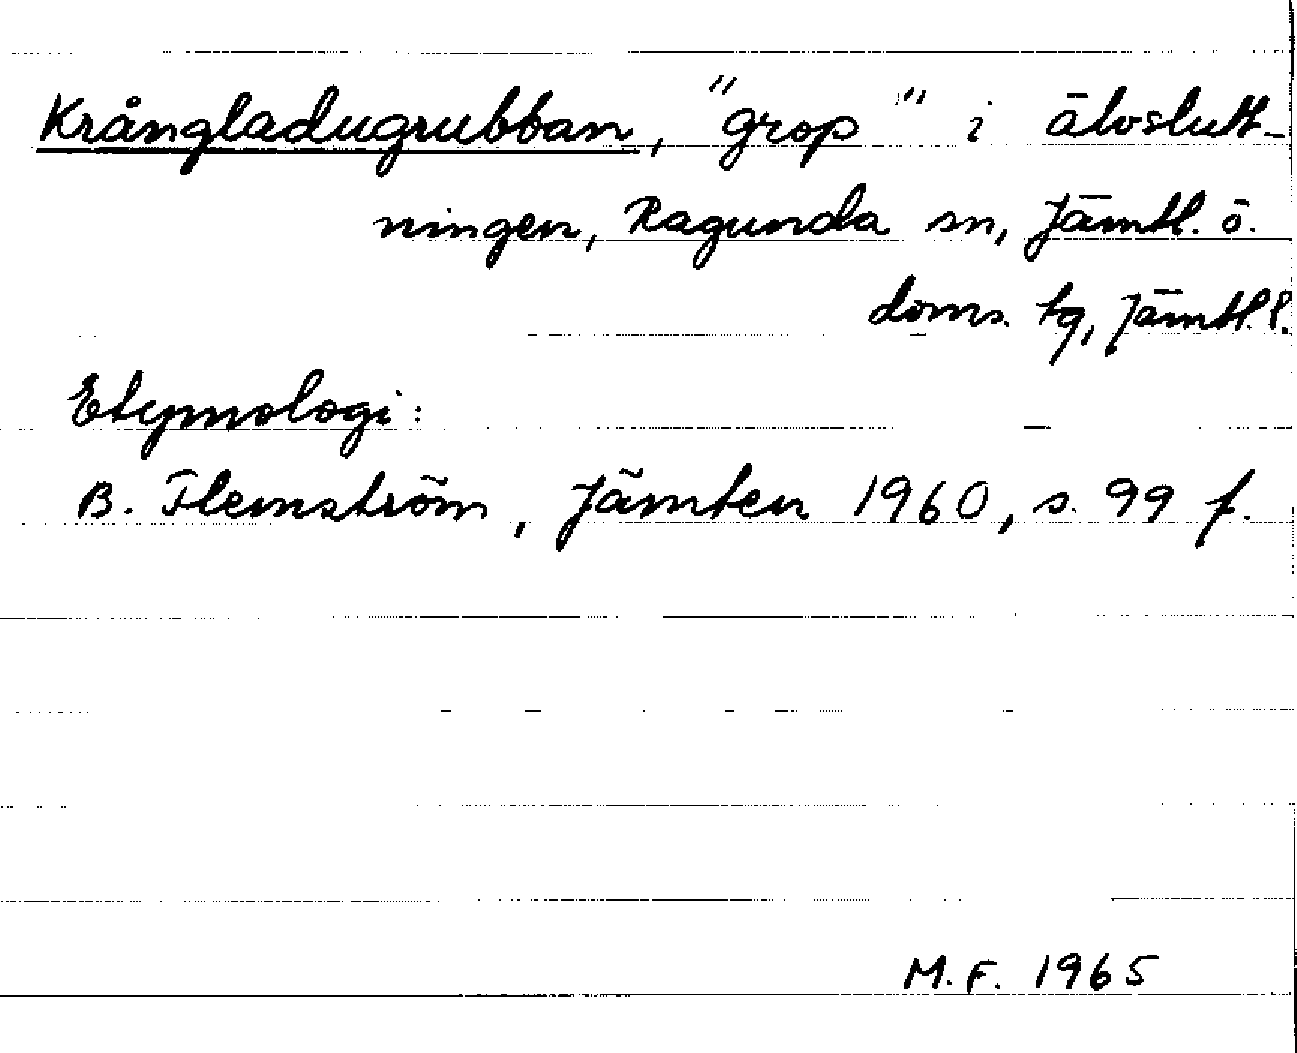 Krångladugrubban, "grop" i älvslutt-
ningen, Ragunda sn, Jämtl. ö.
doms. tg, Jämtl. l.
Etymologi:
B. Flemström, Jämten 1960, s. 99 f.
M.F. 1965